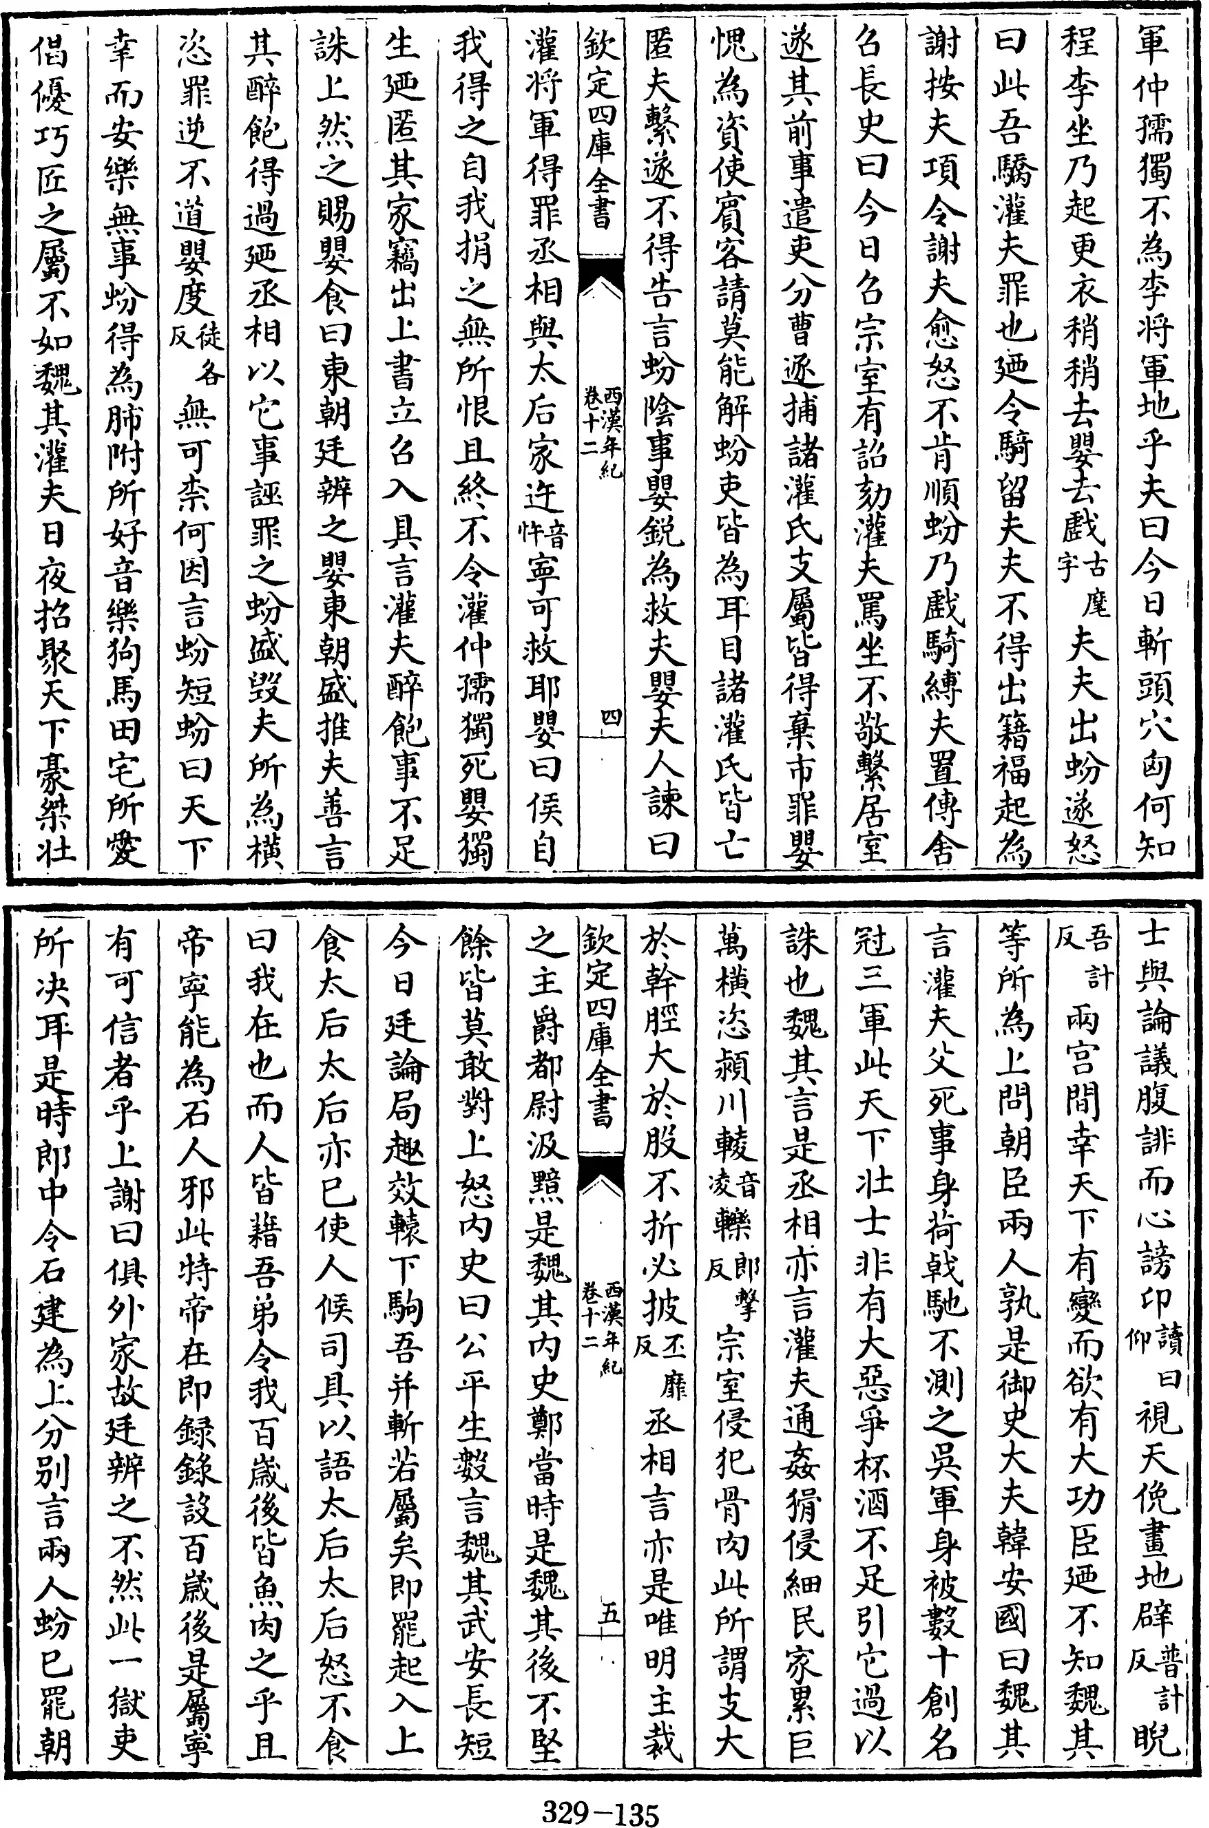 軍仲孺獨不為李將軍地乎夫曰今日斬頭穴匈何知
程李坐乃起更衣稍稍去嬰去戲古麾字夫夫出蚡遂怒
曰此吾驕灌夫罪也廼令騎留夫夫不得出籍福起為
謝按夫項令謝夫愈怒不肯順蚡乃戲騎縛夫置傳舍
召長史曰今日召宗室有詔劾灌夫罵坐不敬繫居室
遂其前事遣吏分曹逐捕諸灌氏支屬皆得棄市罪嬰
愧為資使賓客請莫能解蚡吏皆為耳目諸灌氏皆亡
匿夫繫遂不得告言蚡陰事嬰銳為救夫嬰夫人諫曰
欽定四庫全書 西漢年紀卷十二 四
灌將軍得罪丞相與太后家迕音忤寧可救耶嬰曰侯自
我得之自我捐之無所恨且終不令灌仲孺獨死嬰獨
生廼匿其家竊出上書立召入具言灌夫醉飽事不足
誅上然之賜嬰食曰東朝廷辨之嬰東朝盛推夫善言
其醉飽得過廼丞相以它事誣罪之蚡盛毀夫所為橫
恣罪逆不道嬰度徒各反無可柰何因言蚡短蚡曰天下
幸而安樂無事蚡得為肺附所好音樂狗馬田宅所愛
倡優巧匠之屬不如魏其灌夫日夜招聚天下豪桀壯
士與論議腹誹而心謗卬讀曰仰視天俛畫地辟普計反睨
吾計反兩宫間幸天下有變而欲有大功臣廼不知魏其
等所為上問朝臣兩人孰是御史大夫韓安國曰魏其
言灌夫父死事身荷戟馳不測之吳軍身被數十創名
冠三軍此天下壯士非有大惡爭杯酒不足引它過以
誅也魏其言是丞相亦言灌夫通姦猾侵細民家累巨
萬橫恣潁川輘音凌轢郎擊反宗室侵犯骨肉此所謂支大
於幹脛大於股不折必披丕靡反丞相言亦是唯明主裁
欽定四庫全書 西漢年紀卷十二 五
之主爵都尉汲黯是魏其内史鄭當時是魏其後不堅
餘皆莫敢對上怒内史曰公平生數言魏其武安長短
今日廷論局趣效轅下駒吾并斬若屬矣即罷起入上
食太后太后亦已使人候司具以語太后太后怒不食
曰我在也而人皆藉吾弟令我百歲後皆魚肉之乎且
帝寧能為石人邪此特帝在即録録設百歲後是屬寧
有可信者乎上謝曰俱外家故廷辨之不然此一獄吏
所决耳是時郎中令石建為上分别言兩人蚡已罷朝
329-135